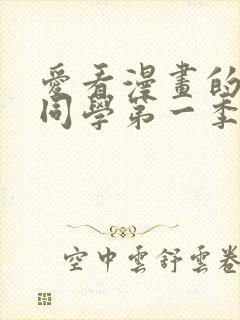 愛看漫畫的
同學第一季
空中雲舒雲卷